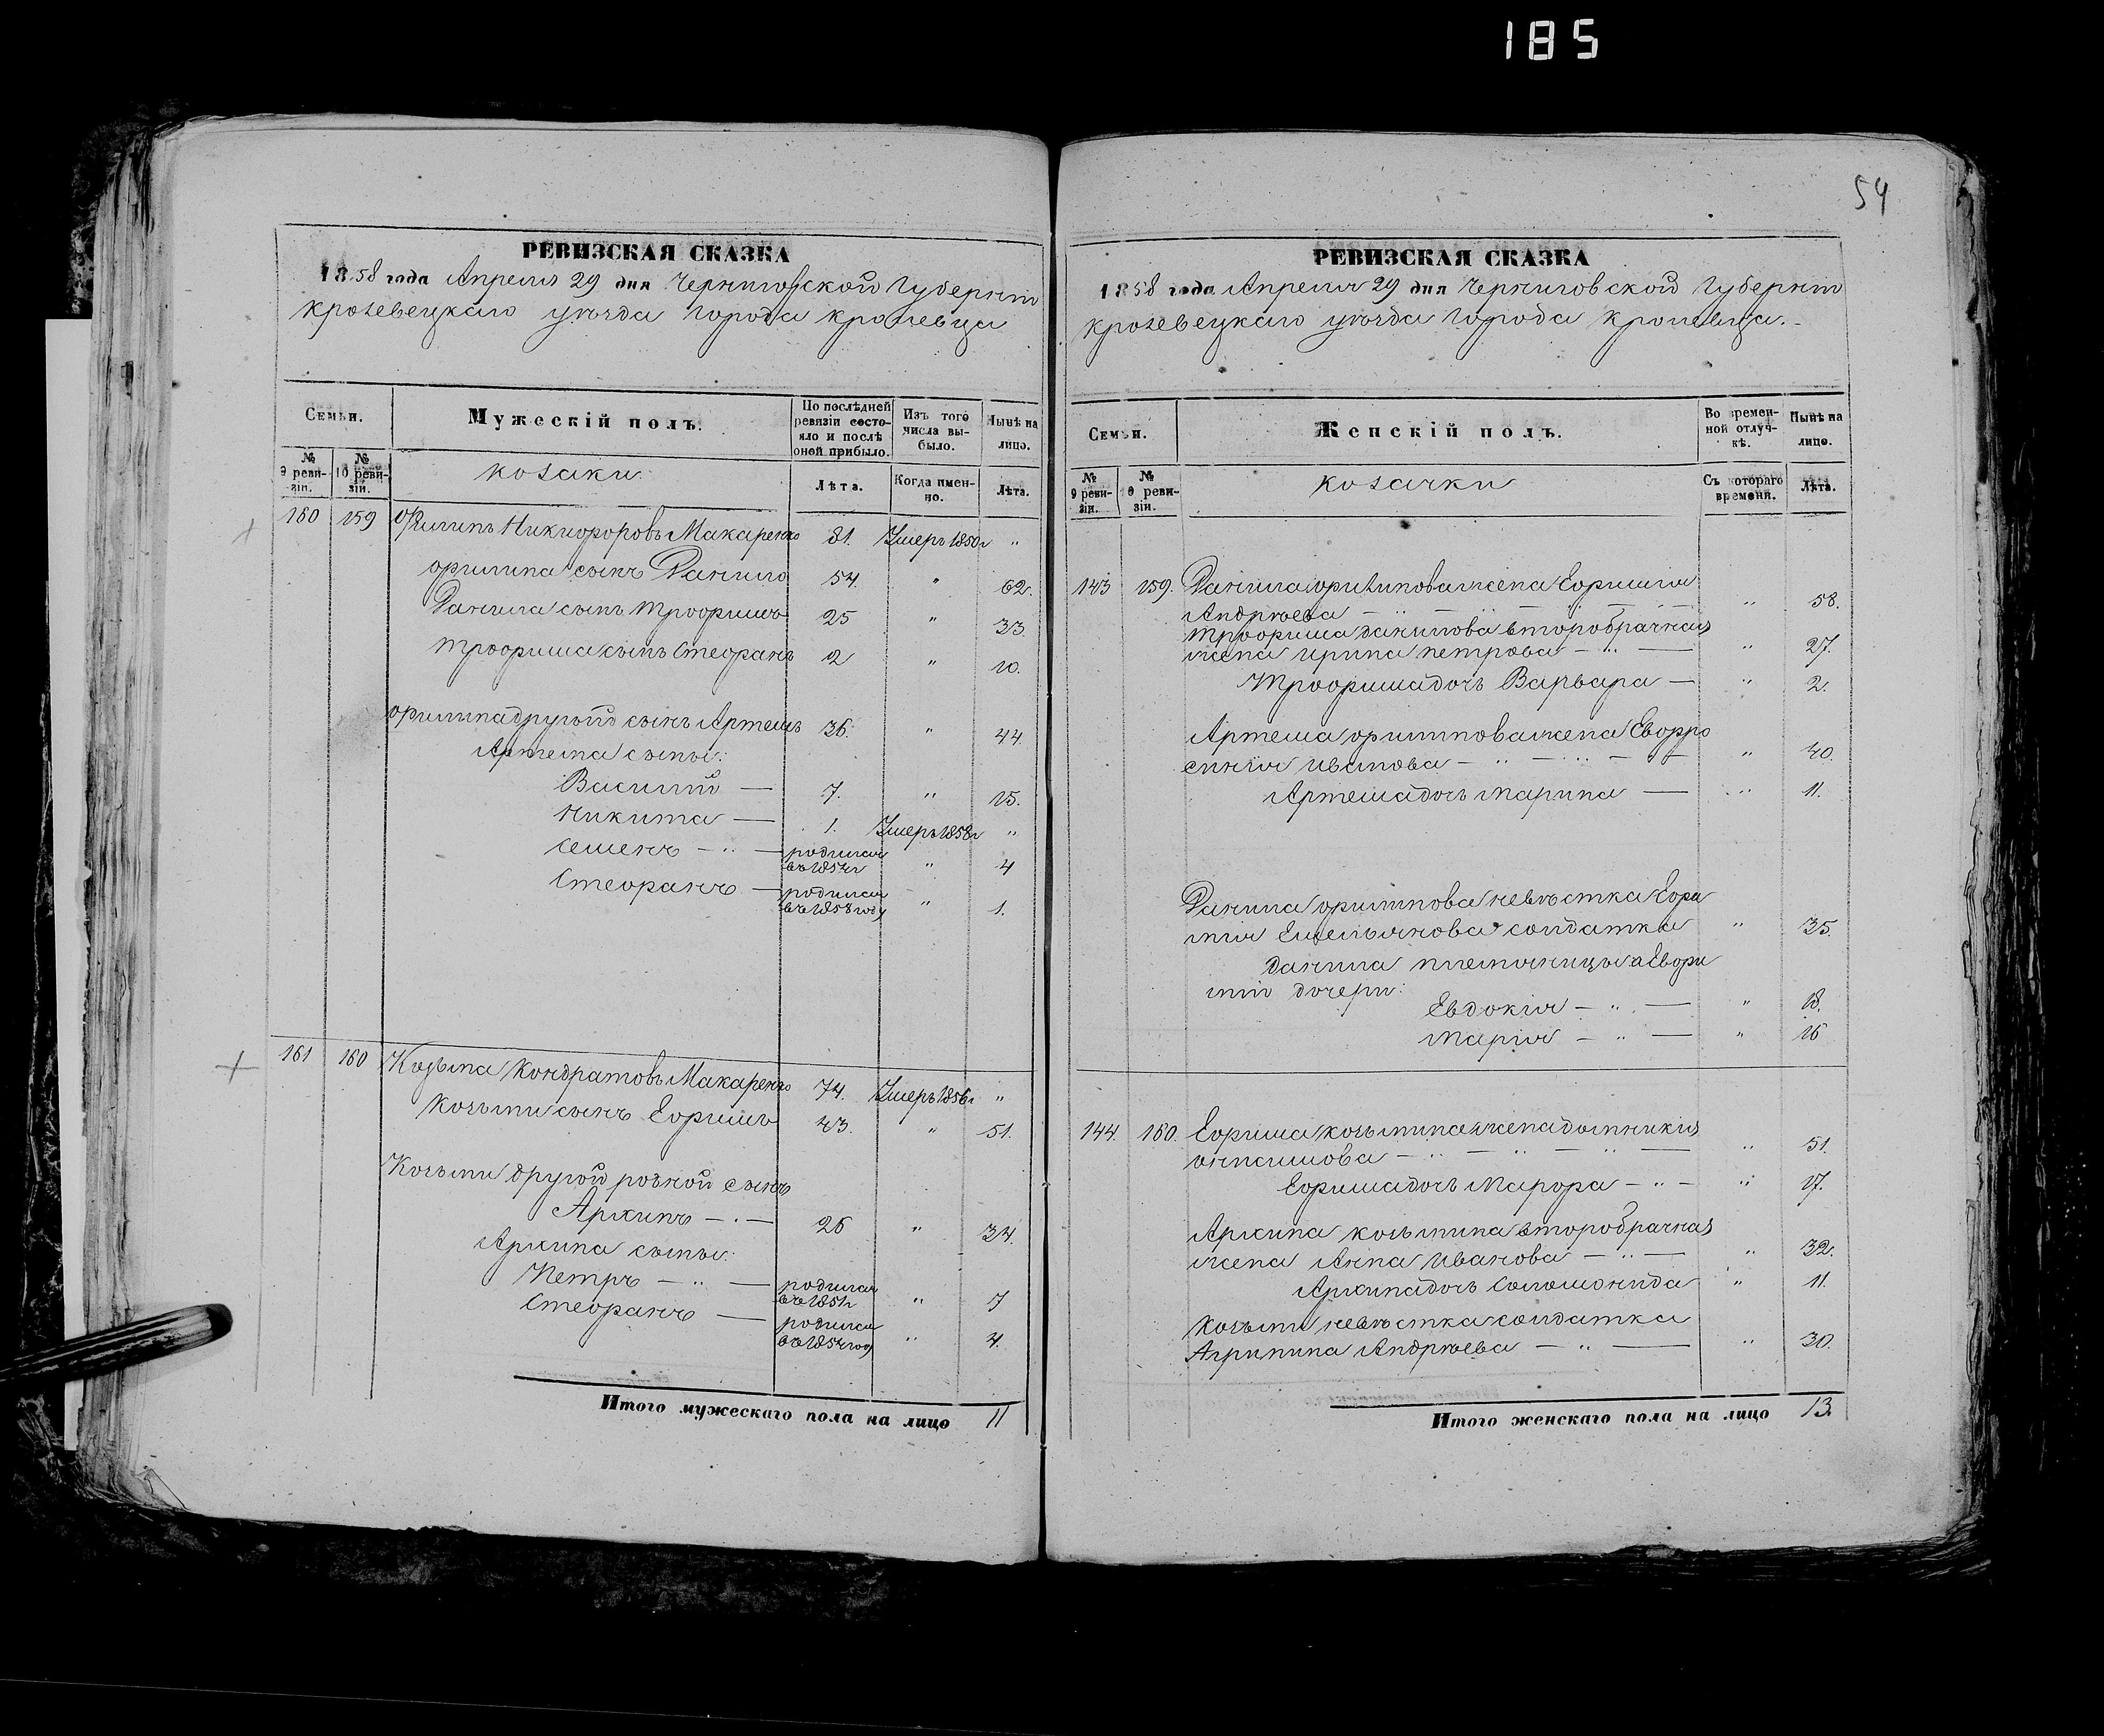 185
54
РЕВИЗСКАЯ СКАЗКА
1858 года Апреля 29 дня Черниговской Губерніи
Кролевецкаго уѣзда города Кролевца
Семьи.
Мужескій полъ.
По послѣдней ревизіи состояло и послѣ оной прибыло.
Изъ того числа выбыло.
Нынѣ на лицо.
№ 9 ревизіи.
№ 10 ревизіи.
козаки
Лѣта.
Когда именно.
Лѣта.
160 159 Филипъ Никифоровъ Макаренко 81. Умеръ 1850г "
Филипа сынъ Данило 54. " 62.
Данила сынъ Трофимъ 25 " 33.
Трофима сынъ Стефанъ 2 " 10.
Филипа другой сынъ Артемъ 36. " 44.
Артема сыны:
Василій — 7. " 15.
Никита — 1. Умеръ 1858г "
Семенъ — " — родился въ 1854г " 4
Стефанъ — родился въ 1858 году " 1.
161 160 Козьма Кондратовъ Макаренко 74. Умеръ 1856г "
Козьми сынъ Ефимъ 43. " 51.
Козьми другой родной сынъ
Архипъ — " — 26 " 34.
Архипа сыны:
Петръ — " — родился въ 1851г " 7
Стефанъ — родился въ 1854 году " 4.
Итого мужескаго пола на лицо 11
РЕВИЗСКАЯ СКАЗКА
1858 года Апреля 29 дня Черниговской Губерніи
Кролевецкаго уѣзда города Кролевца.
Семьи.
Женскій полъ.
Во временной отлучкѣ.
Нынѣ на лицо.
№ 9 ревизіи.
№ 0 ревизіи.
козачки
Съ котораго времени.
Лѣта.
143 159. Данила Филипова жена Ефимія
Андрѣева — " — " — " — " 58.
Трофима Данилова второбрачная
жена Ирина Петрова — " — " 27.
Трофима дочь Варвара — " 2.
Артема Филипова жена Евфро
синія Иванова — " — " — " 40.
Артема дочь Марина — " 11.
Данила Филипова невѣстка Ефи
мія Емельянова солдатка " 35.
Данила племянницы а Евфи
міи дочери:
Евдокія — " — " 18.
Марія — " — " 16
144. 160. Ефима Козьмина жена Домникія
Анисимова — " — " — " — " 51.
Ефима дочь Марфа — " — " 17.
Архипа Козьмина второбрачная
жена Анна Иванова — " — " 32.
Архипа дочь Соломонида " 11.
Козьми невѣстка солдатка
Агрипина Андрѣева — " — " 30.
Итого женскаго пола на лицо 13.